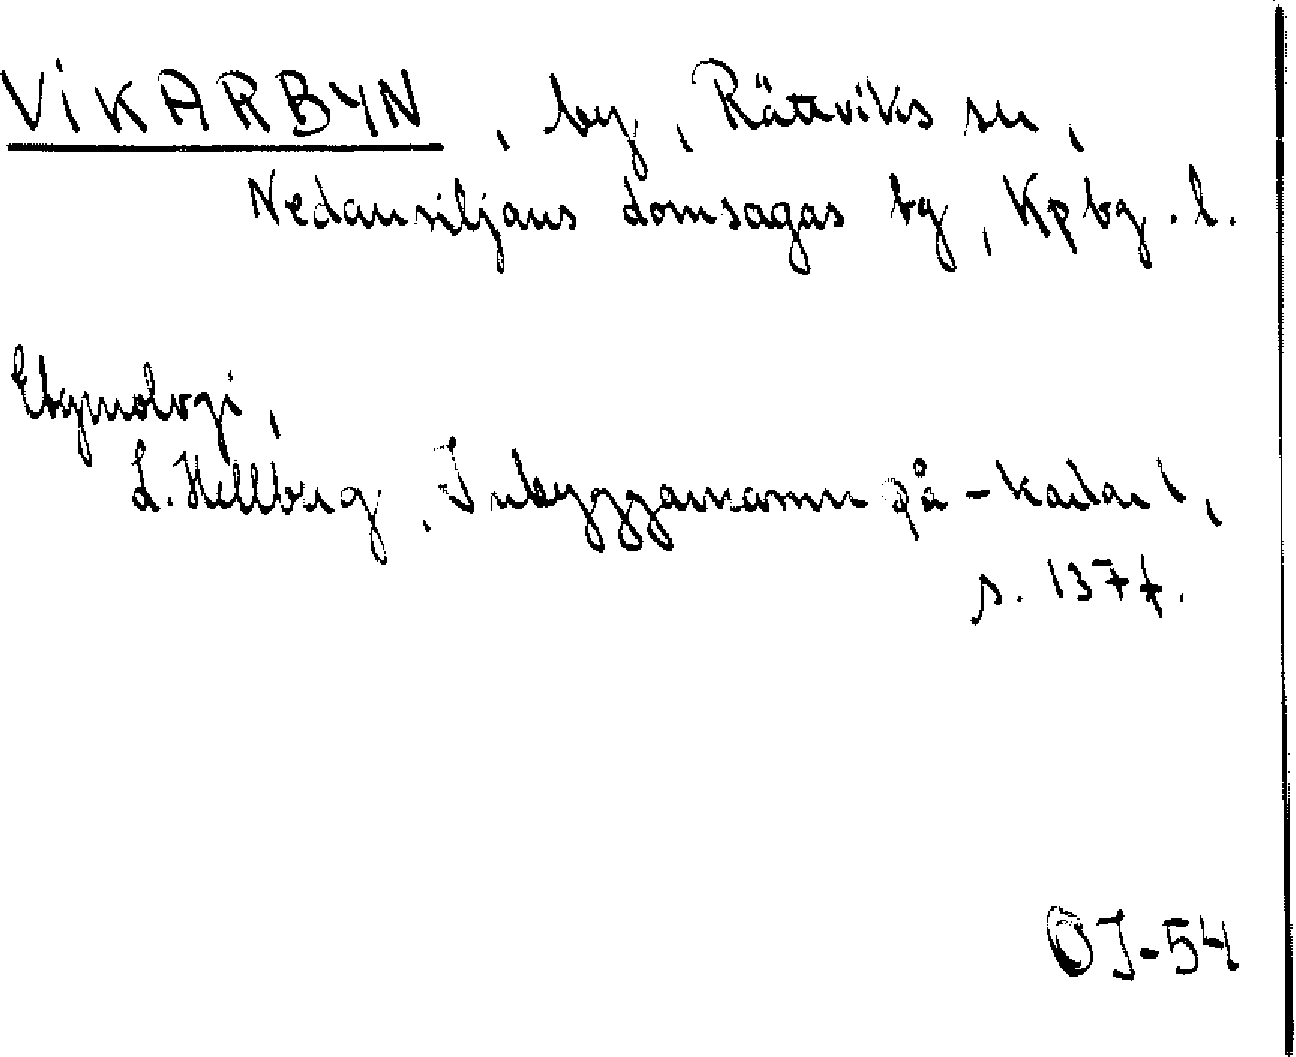 VIKARBYN, by, Rättviks sn,
Nedansiljans domsagas tg, Kpbg. l.
Etymologi,
L. Hellberg, Inbyggarnamn på -karlar 1,
s. 137 f.
OJ-54